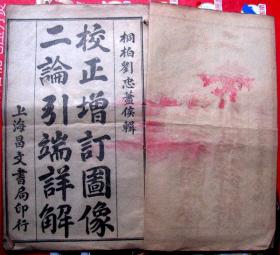 桐柏劉忠蓋侯輯
校正增訂圖像
二論引端詳解
上海昌文書局印行